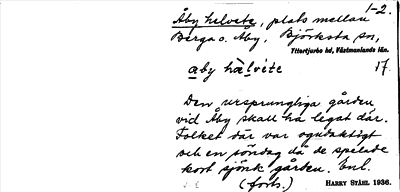 1-2.
Åby helvete, plats mellan
Berga o. Åby, Björksta sn,
Yttertjurbo hd, Västmanlands län.
åby hälvite 17.
Den ursprungliga gården
vid Åby skall ha legat där.
Folket där var ogudaktigt
och en söndag då de spelade
kort sjönk gården. Enl.
(forts.) HARRY STÅHL 1936.